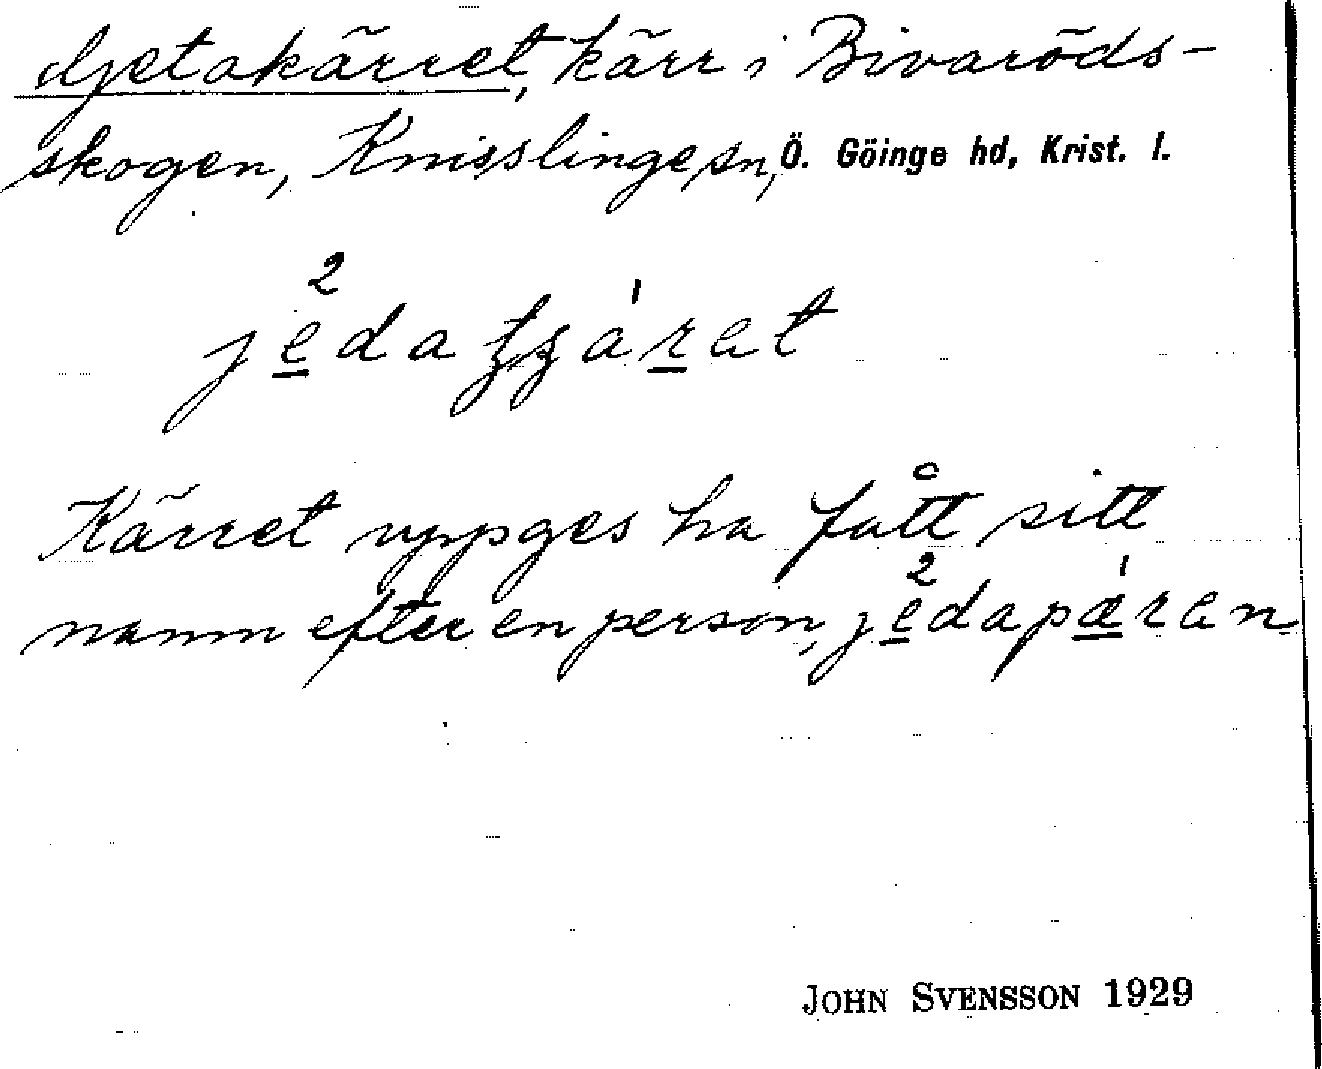 Gjetakärret, kärr i Bivaröds-
skogen, Knisslinge sn, Ö. Göinge hd, Krist. l.
Kärret uppges ha fått sitt
namn efter en person,
JOHN SVENSSON 1929